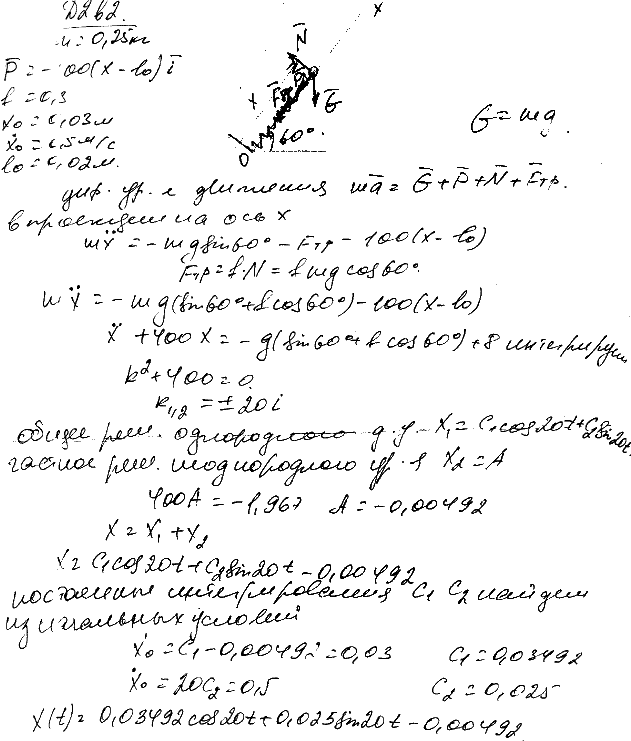 D262.
m = 0,25кг
P̄ = -100(x - l₀) ī
f = 0,3
x₀ = 0,03м
ẋ₀ = 0,5м/с
l₀ = 0,02м.
x
N̄
x
F̄тр
Ḡ
60°
O
G = mg.
диф. ур. е движения mā = Ḡ + P̄ + N̄ + F̄тр.
в проекции на ось x
mẍ = -mg sin60° - Fтр - 100(x - l₀)
Fтр = f·N = f mg cos60°
mẍ = -mg(sin60° + f cos60°) - 100(x - l₀)
ẍ + 400x = -g(sin60° + f cos60°) + 8 интегрируем
k² + 400 = 0.
k₁,₂ = ±20i
общее реш. однородного д.у. - x₁ = C₁cos20t + C₂sin20t.
частное реш. неоднородного ур-я x₂ = A
400A = -1,967 A = -0,00492
x = x₁ + x₂
x = C₁cos20t + C₂sin20t - 0,00492
постоянные интегрирования C₁ C₂ найдем
из начальных условий
x₀ = C₁ - 0,00492 = 0,03 C₁ = 0,03492
ẋ₀ = 20C₂ = 0,5 C₂ = 0,025
x(t) = 0,03492cos20t + 0,025sin20t - 0,00492